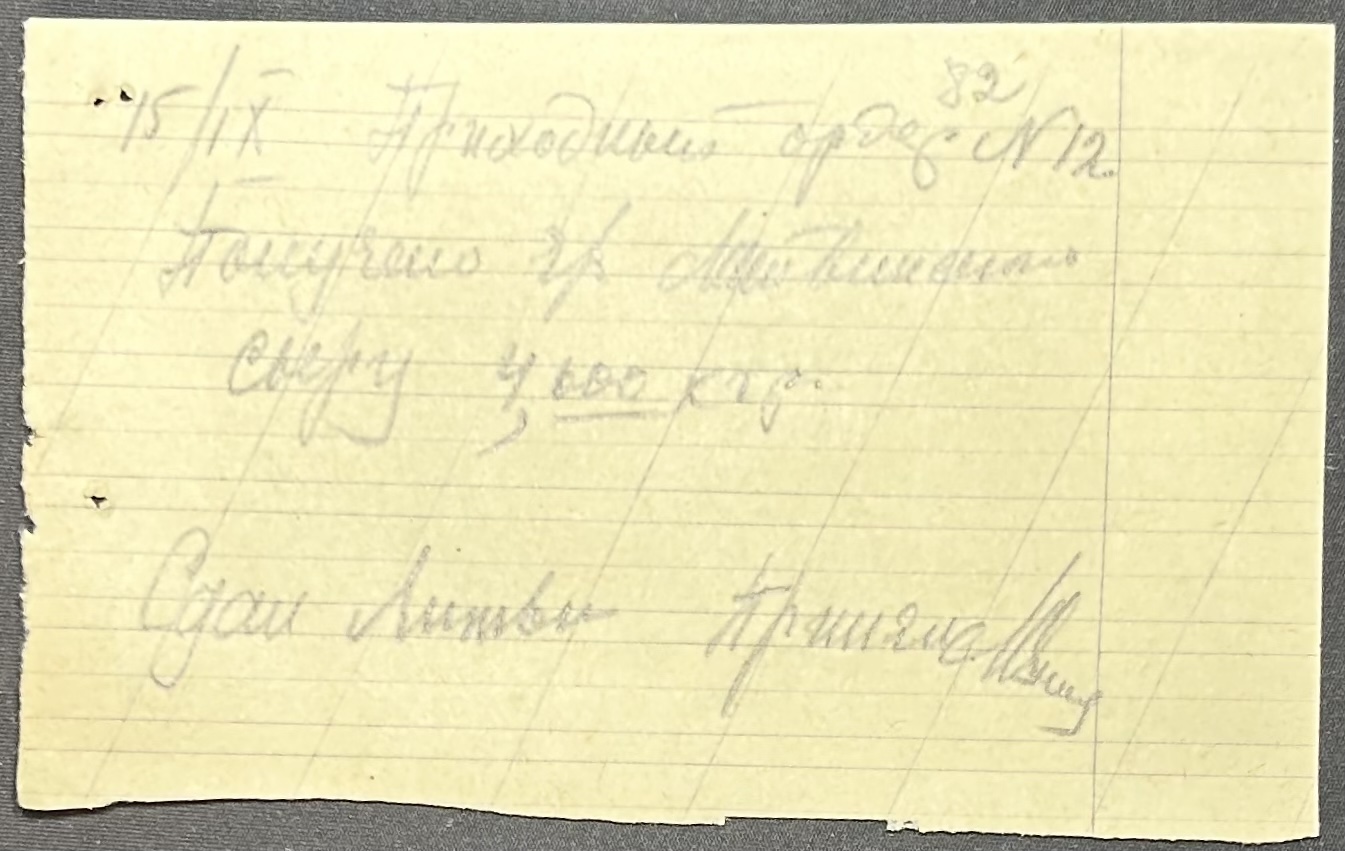 82
15/IX Приходный ордер N 12
Получено гр.
сыру 4,600 кгр.
Сдал Литвин Приняла